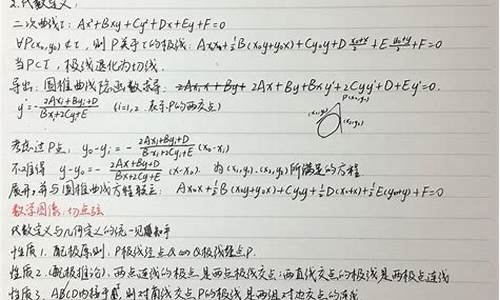 2.代数定义:
二次曲线τ: Ax²+Bxy+Cy²+Dx+Ey+F=0
∀P(x₀,y₀)∉τ, 则P关于τ的极线: Ax₀x+½B(x₀y+y₀x)+Cy₀y+D(x₀+x)/2+E(y₀+y)/2+F=0
当P⊂τ, 极线退化为切线.
导出: 圆锥曲线隐函数求导: 2Ax+By+Bxy'+2Cyy'+D+Ey'=0.
y'=-(2Axᵢ+Byᵢ+D)/(Bxᵢ+2Cyᵢ+E) (i=1,2 表示P的两交点)
P(x₀,y₀)
(x₁,y₁)
(x₂,y₂)
考虑过P点, y₀-yᵢ=-(2Axᵢ+Byᵢ+D)/(Bxᵢ+2Cyᵢ+E)(x₀-xᵢ)
不难得 y-y₀=-(2Ax+By+D)/(Bx+2Cy+E)(x-x₀). 为(x₁,y₁),(x₂,y₂)所满足的方程
展开,并与圆锥曲线方程联立: Ax₀x+½B(x₀y+y₀x)+Cy₀y+½D(x₀+x)+½E(y₀+y)+F=0
数学图像: 切点弦
代数定义与几何定义的统一见知乎
性质1. 配极原则: P极线经点Q⇔Q极线经点P.
性质2.(配极推论), 两点连线的极点是两点极线交点; 两直线交点的极线是两极点连线
性质3. ABCD内接于, 则对角线交点P的极线是两组对边交点的连线